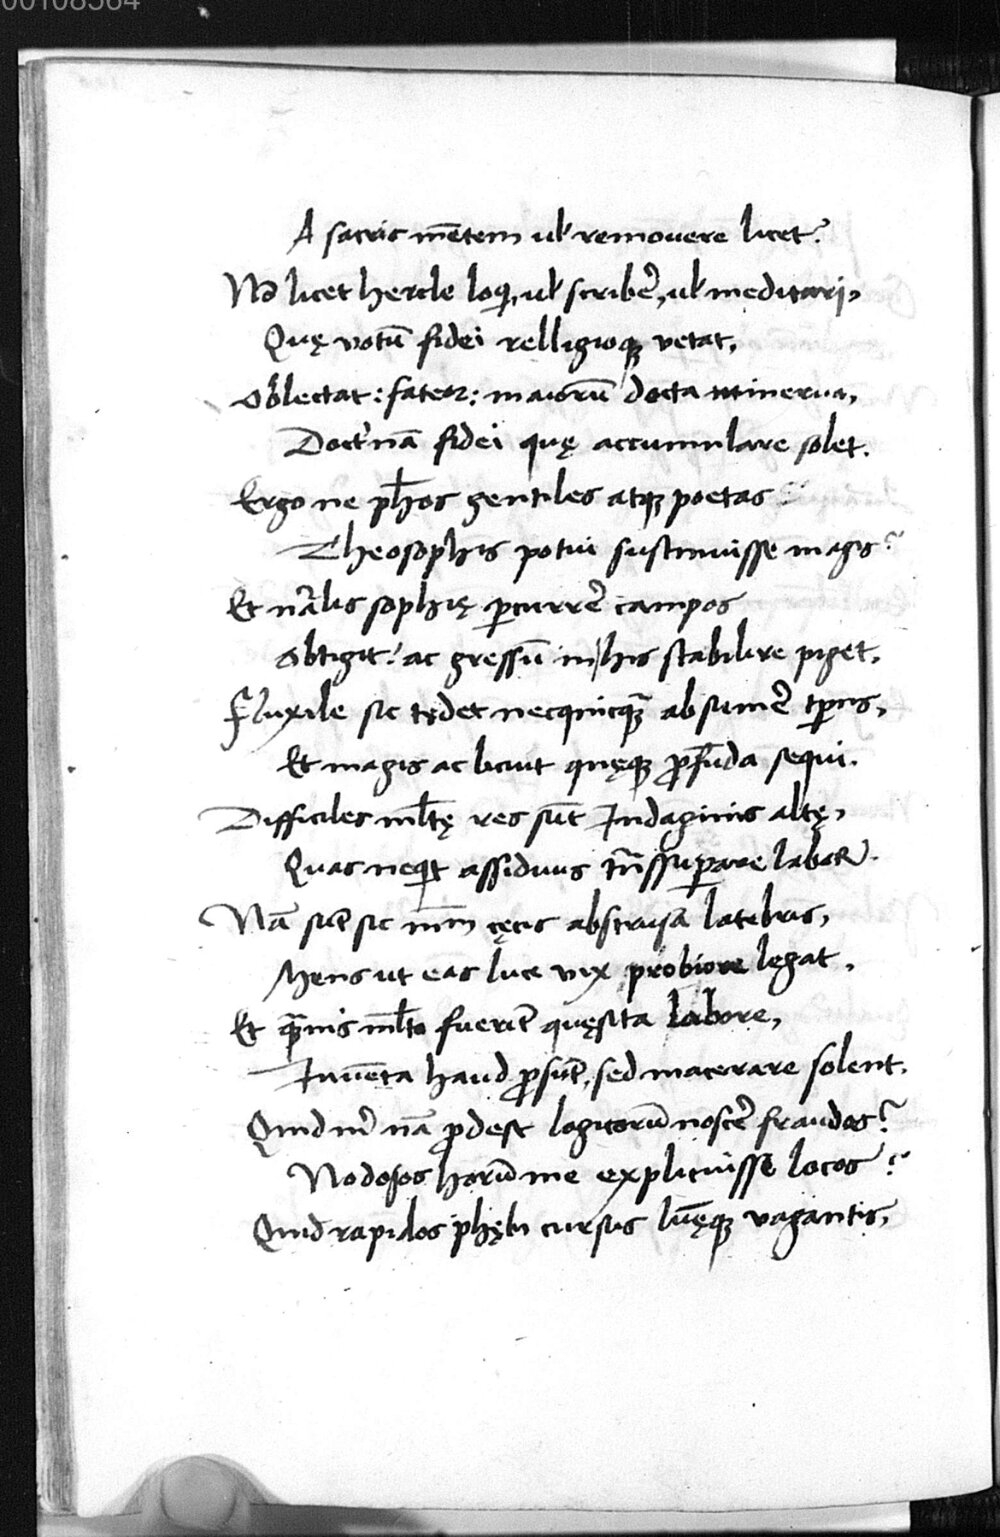 00108564
A sacris mẽtem ul' remouere licet?
Nõ licet hercle loqi, ul' scriberẽ, ul' meditari,
Quę votũ fidei relligioqꝫ vetat.
Oblectat: fateor: maiorũ docta minerua,
Doctⁱnã fidei quę accumulare solet.
Ergo ne ph̃os gentiles atqꝫ poetas
Theosophis potui sustinuisse magis?
Et nr̃alis sophię ꝑcurrer̃ campos
Obtigit? ac gressũ in his stabilire piget.
Fluxile sic tędet necquicqꝫ̃ absumer̃ tꝑus,
Et magis ac licuit quęqꝫ ꝓfũda sequi.
Difficiles ml̃tę res sũt Indaginis altę,
Quas neqit assiduus trñssuꝑare labor.
Nã sũt sic nim̃ cęcis abstrusa latebris,
Mens ut eas luce vix probiore legat.
Et qꝫ̃uis ml̃to fuerĩt quęsita labore,
Inuẽta haud ꝓsũt, sed macerare solent.
Quid m̃ nã ꝓdest logicorũ noscer̃ fraudes?
Nodosos horũ me explicuisse locos?
Quid rapidos phębi cursus lũęqꝫ vagantis,